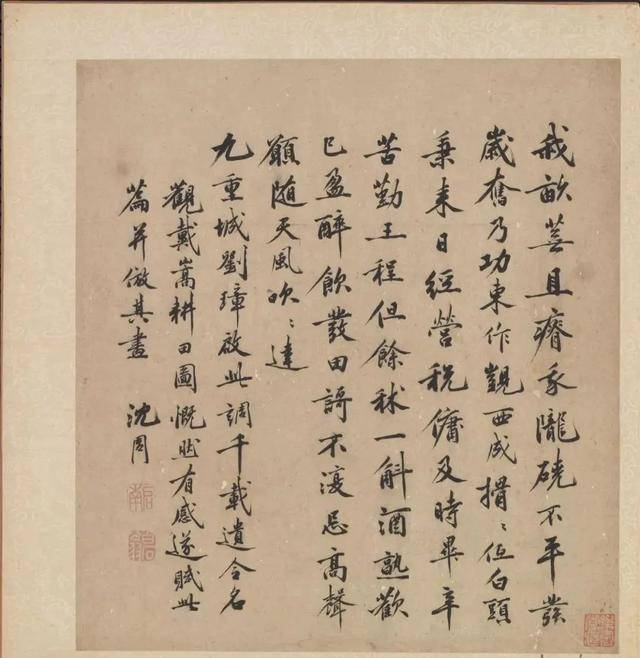 我畝蕪且瘠我隴磽不平發
歲奮乃功東作觀西成搰〻任白頭
秉耒日經營稅傭及時畢辛
苦勤王程但餘秫一斛酒熟歡
已盈醉飲發田謌不復忌高聲
願随天風吹〻達
九重城劉璋啟此調千載遺令名
觀戴嵩耕田圖慨然有感遂賦此
篇并倣其畫 沈周